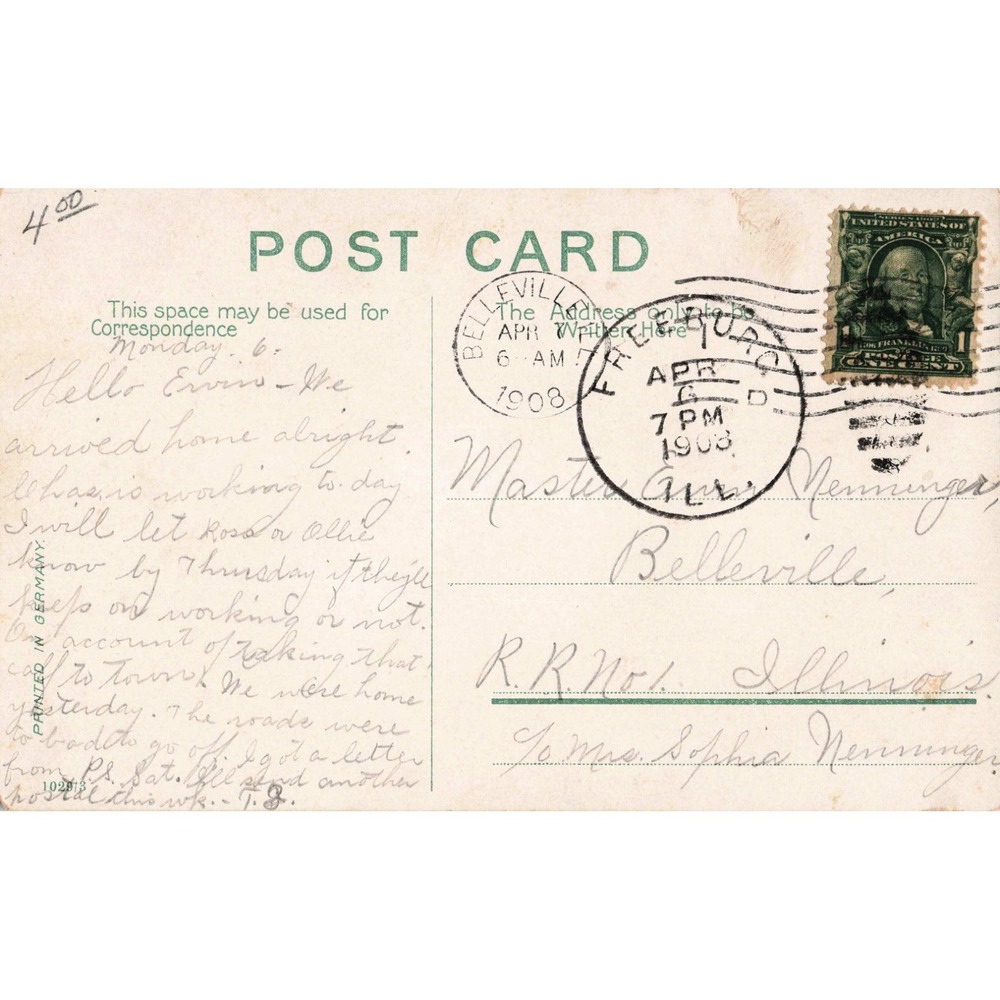 4 00
POST CARD
This space may be used for
Correspondence
The Address only to be
Written Here
BELLEVILLE
APR 7
6 - AM
1908
FREEBURG
APR
6
7 PM
1908
ILL.
D
SERIES 1902
UNITED STATES OF
AMERICA
1 FRANKLIN 1
POSTAGE
ONE CENT
Monday. 6.
Hello Erwin - We
arrived home alright.
Chas. is working to-day
I will let Rosa or Ollie
know by Thursday if they'll
keep on working or not.
On account of taking that
calf to town. We were home
yesterday. The roads were
to bad to go off. I got a letter
from P.S. Sat. I'll send another
postal this wk. - T.J.
Master Erwin Nenninger,
Belleville,
R.R. No 1. Illinois.
c/o Mrs. Sophia Nenninger.
PRINTED IN GERMANY.
1029/3